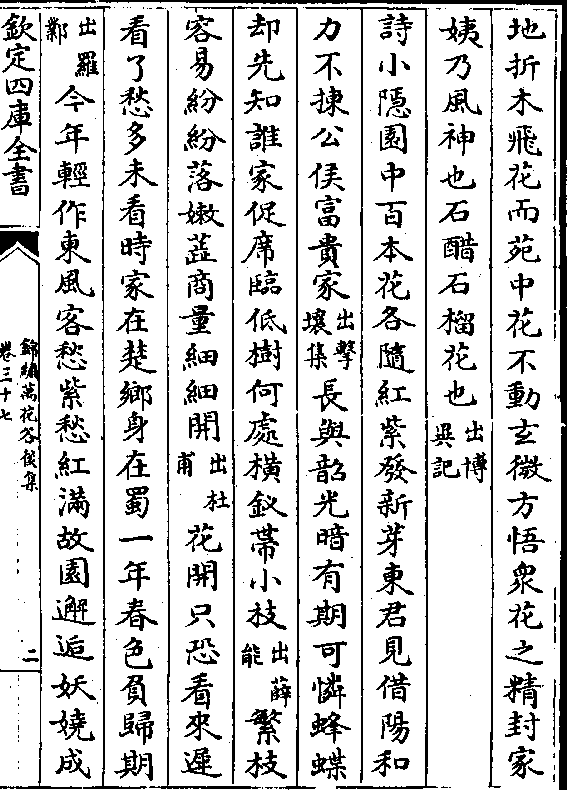 地折木飛花而苑中花不動玄微方悟衆花之精封家
姨乃風神也石醋石榴花也出博異記
詩小隱園中百本花各隨紅紫發新芽東君見借陽和
力不揀公侯富貴家出擊壤集長與韶光暗有期可憐蜂蝶
却先知誰家促席臨低樹何處橫釵帶小枝出薛能繁枝
容易紛紛落嫩蕋商量細細開出杜甫花開只恐看來遲
看了愁多未看時家在楚鄉身在蜀一年春色負歸期
出羅鄴今年輕作東風客愁紫愁紅滿故園邂逅妖嬈成
欽定四庫全書
錦繡萬花谷後集
卷三十七
二